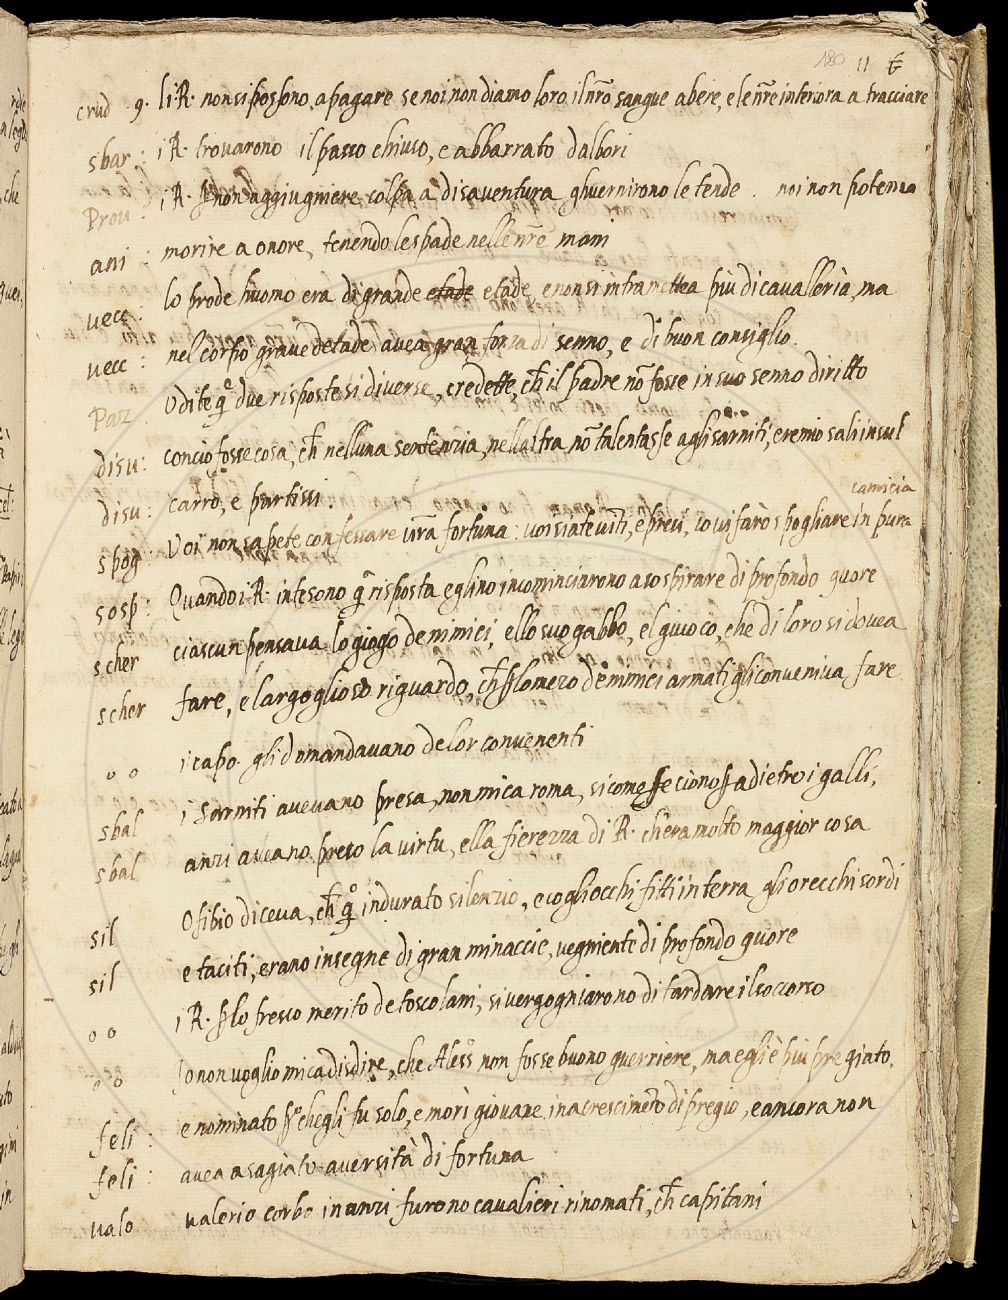 180 11
crud 9. li R. non si possono apagare se noi non diamo loro il nr̃o sangue abere, e le nr̃e interiora a tracciare
sbar: i R. trovarono il passo chiuso, e abbarrato dalbori
Prou: i R. ꝑ non aggiugniere colpa a disaventura ghuernirono le tende. noi non potemo
ani: morire a onore, tenendo le spade nelle nr̃e mani
vecc: lo prode huomo era di grande etade etade, e non si intramettea più di cavalleria, ma
vecc: nel corpo grave detade avea gran forza di senno, e di buon consiglio.
Paz Udite q̊ due risposte si diverse, credette, ch̃ il padre nõ fosse in suo senno diritto
disu: concio fosse cosa, ch̃ nelluna sentenzia, nellaltra nõ talentasse agli sanniti, eremio sali in sul
disu: carro, e partissi.
camicia
spog: Voi non sapete confessare vr̃a fortuna: voi siate vinti, e presi, io vi farò spogliare in pura
sosp: Quando i R. intesono q̃ risposta eglino incominciarono a sospirare di profondo quore
scher ciascun pensava lo giogo de nimici, ello suo gabbo, el giuoco, che di loro si dovea
scher fare, e largoglioso riguardo, ch̃ ꝑ lo mezo de nimici armati gli conveniva fare
o o i capo. gli domandavano de lor convenenti
sbal i sanniti avevano presa, non mica roma, si come feciono ꝑ adietro i galli,
sbal anzi aveano preso la virtu, ella fierezza di R. chera molto maggior cosa
sil Ofibio diceva, ch̃ q̊ indurato silenzio, e co gliocchi fitti in terra gli orecchi sordi
sil e taciti, erano insegne di gran minaccie, vegniente di profondo quore
o o i R. ꝑ lo fresco merito de toscolani, si vergogniarono di tardare il soccorso
o o Jo non voglio mica disdire, che Aless̊ non fosse buono guerriere, ma egli è più pregiato,
feli: e nominato ꝑ̊ chegli fu solo, e morì giovane in acrescimẽto di pregio, e ancora non
feli: avea asagiato aversità di fortuna
valo valerio corbo inanzi furono cavalieri rinomati, ch̃ capitani